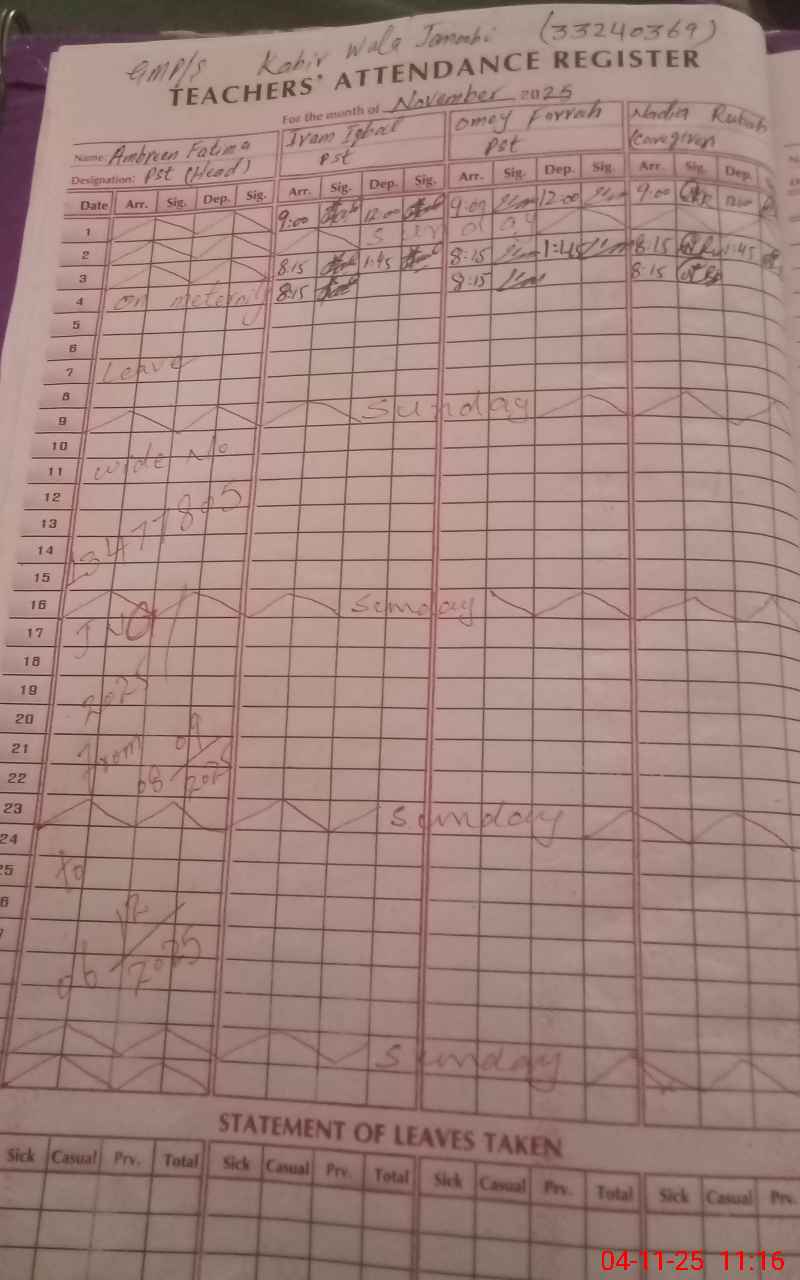 GMP/S Kabir Wala Janoobi (33240369)
TEACHERS' ATTENDANCE REGISTER
For the month of November 2025
Name: Ambreen Fatima Iram Iqbal Nadia
Designation: Pst (Head) Pst Pst Caregiver
Date Arr. Sig. Dep. Sig. Arr. Sig. Dep. Sig. Arr. Sig. Dep. Sig. Arr. Sig. Dep.
1 9:00 12:00 9:00 12:00 9:00
2 Sunday
3 8:15 1:45 8:15 1:45 8:15 1:45
4 on 8:15 8:15 8:15
5
6
7 Leave
8
9 Sunday
10
11 wide No
12
13
14
15
16 Sunday
17
18
19
20 2025
21 from 09
22 08 2025
23 Sunday
24
25 to
6
7
06 2025
Sunday
STATEMENT OF LEAVES TAKEN
Sick Casual Prv. Total Sick Casual Prv. Total Sick Casual Prv. Total Sick Casual Prv.
04-11-25 11:16